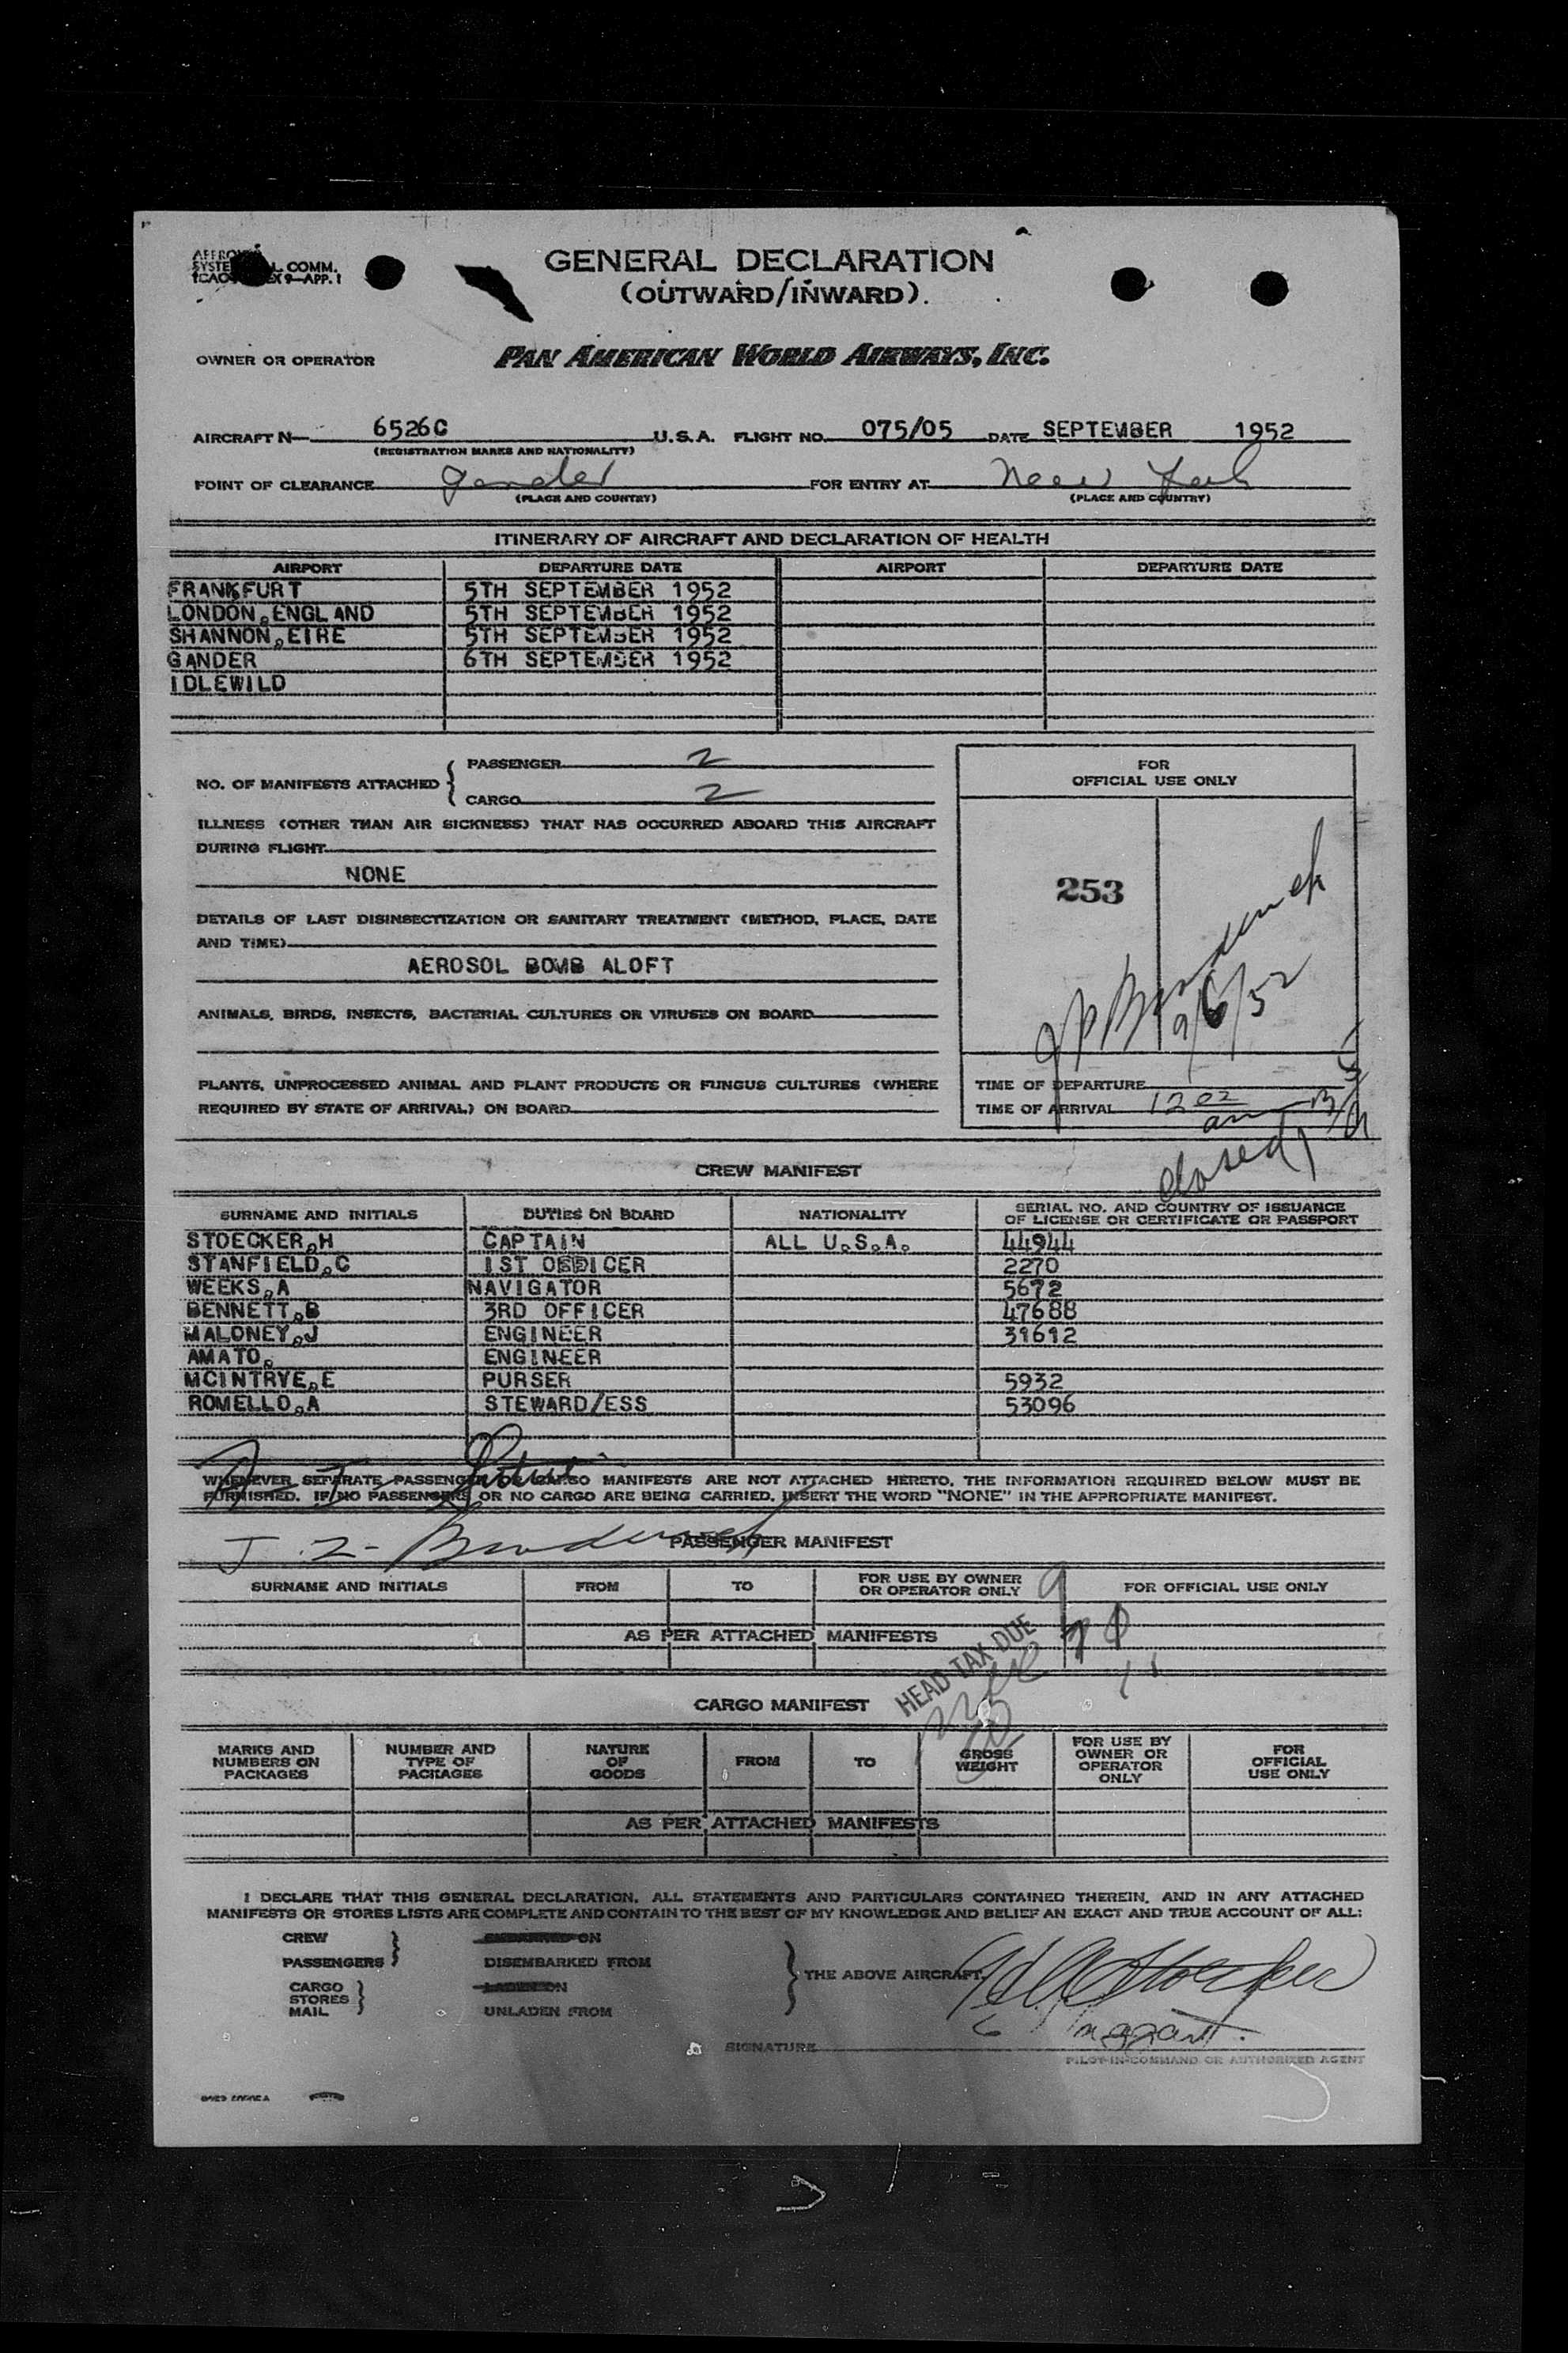 GENERAL DECLARATION
(OUTWARD/INWARD).
L. COMM.
9—APP. 1
OWNER OR OPERATOR PAN AMERICAN WORLD AIRWAYS, INC.
AIRCRAFT N— 6526C U.S.A. FLIGHT NO. 075/05 DATE SEPTEMBER 1952
(REGISTRATION MARKS AND NATIONALITY)
POINT OF CLEARANCE Gander FOR ENTRY AT New York
(PLACE AND COUNTRY) (PLACE AND COUNTRY)
ITINERARY OF AIRCRAFT AND DECLARATION OF HEALTH
AIRPORT DEPARTURE DATE AIRPORT DEPARTURE DATE
FRANKFURT 5TH SEPTEMBER 1952
LONDON,ENGLAND 5TH SEPTEMBER 1952
SHANNON,EIRE 5TH SEPTEMBER 1952
GANDER 6TH SEPTEMBER 1952
IDLEWILD
NO. OF MANIFESTS ATTACHED { PASSENGER 2
CARGO 2
ILLNESS (OTHER THAN AIR SICKNESS) THAT HAS OCCURRED ABOARD THIS AIRCRAFT
DURING FLIGHT
NONE
DETAILS OF LAST DISINSECTIZATION OR SANITARY TREATMENT (METHOD, PLACE, DATE
AND TIME)
AEROSOL BOMB ALOFT
ANIMALS, BIRDS, INSECTS, BACTERIAL CULTURES OR VIRUSES ON BOARD
PLANTS, UNPROCESSED ANIMAL AND PLANT PRODUCTS OR FUNGUS CULTURES (WHERE
REQUIRED BY STATE OF ARRIVAL) ON BOARD
FOR
OFFICIAL USE ONLY
253
9/6/52
TIME OF DEPARTURE
TIME OF ARRIVAL 1202
am
closed
CREW MANIFEST
SURNAME AND INITIALS DUTIES ON BOARD NATIONALITY SERIAL NO. AND COUNTRY OF ISSUANCE
OF LICENSE OR CERTIFICATE OR PASSPORT
STOECKER,H CAPTAIN ALL U.S.A. 44944
STANFIELD,C 1ST OFFICER 2270
WEEKS,A NAVIGATOR 5672
BENNETT,B 3RD OFFICER 47688
MALONEY,J ENGINEER 31612
AMATO, ENGINEER
MCINTRYE,E PURSER 5932
ROMELLO,A STEWARD/ESS 53096
WHENEVER SEPARATE PASSENGER OR CARGO MANIFESTS ARE NOT ATTACHED HERETO, THE INFORMATION REQUIRED BELOW MUST BE
FURNISHED. IF NO PASSENGERS OR NO CARGO ARE BEING CARRIED, INSERT THE WORD "NONE" IN THE APPROPRIATE MANIFEST.
PASSENGER MANIFEST
SURNAME AND INITIALS FROM TO FOR USE BY OWNER
OR OPERATOR ONLY FOR OFFICIAL USE ONLY
AS PER ATTACHED MANIFESTS
HEAD TAX DUE
CARGO MANIFEST
MARKS AND
NUMBERS ON
PACKAGES
NUMBER AND
TYPE OF
PACKAGES
NATURE
OF
GOODS
FROM TO GROSS
WEIGHT
FOR USE BY
OWNER OR
OPERATOR
ONLY
FOR
OFFICIAL
USE ONLY
AS PER ATTACHED MANIFESTS
I DECLARE THAT THIS GENERAL DECLARATION, ALL STATEMENTS AND PARTICULARS CONTAINED THEREIN, AND IN ANY ATTACHED
MANIFESTS OR STORES LISTS ARE COMPLETE AND CONTAIN TO THE BEST OF MY KNOWLEDGE AND BELIEF AN EXACT AND TRUE ACCOUNT OF ALL:
CREW EMBARKED ON
PASSENGERS } DISEMBARKED FROM
CARGO LADEN ON
STORES } THE ABOVE AIRCRAFT.
MAIL UNLADEN FROM
SIGNATURE
PILOT-IN-COMMAND OR AUTHORIZED AGENT